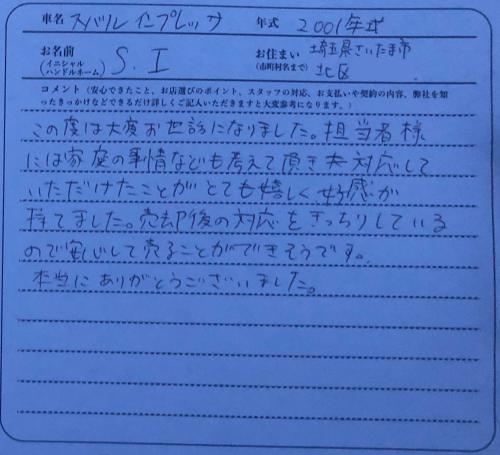 車名 スバル インプレッサ 年式 2001年式
お名前 (イニシャル ハンドルネーム) S.I お住まい (市町村名まで) 埼玉県さいたま市 北区
コメント (安心できたこと、お店選びのポイント、スタッフの対応、お支払いや契約の内容、弊社を知
ったきっかけなどできるだけ詳しくご記入いただきますと大変参考になります。)
この度は大変お世話になりました。担当者様
には家庭の事情なども考えて頂き 対応して
いただけたことがとても嬉しく、好感が
持てました。売却後の対応をきっちりしている
ので安心して売ることができそうです。
本当にありがとうございました。